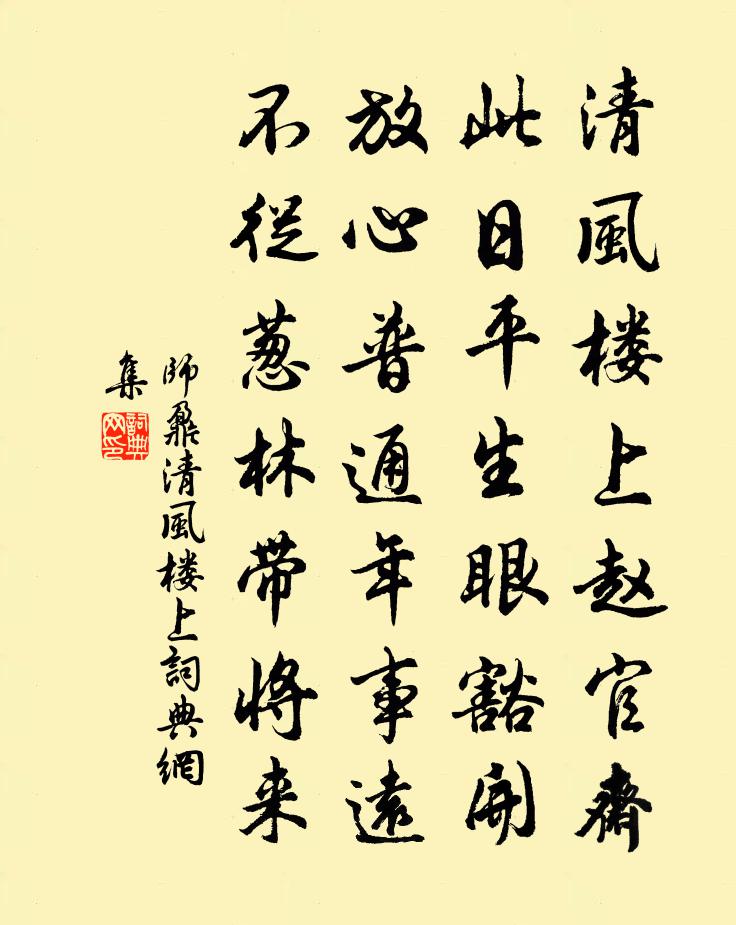 清風楼上赵官齋
此日平生眼豁開
放心普通年事遠
不從葱林带将来
師鼐清風楼上詞典網
集
詞典网印